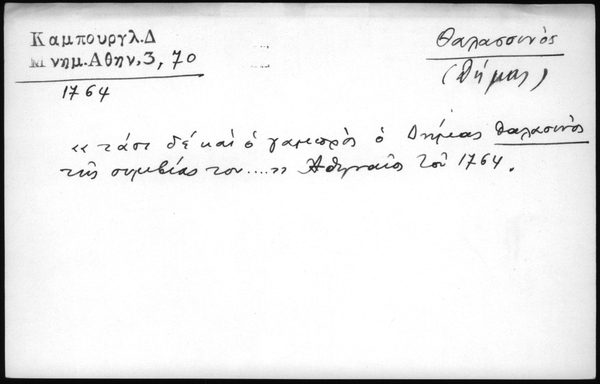 Καμπουργλ.Δ
Μνημ.Αθην.3, 70
1764
Θαλασσινὸς
(Δήμας)
«τάσι δέ καὶ ὁ γαμπρὸς ὁ Δημέας θαλασινὸς
τῆς συμβίας του....» Ἀθηναῖος τοῦ 1764.